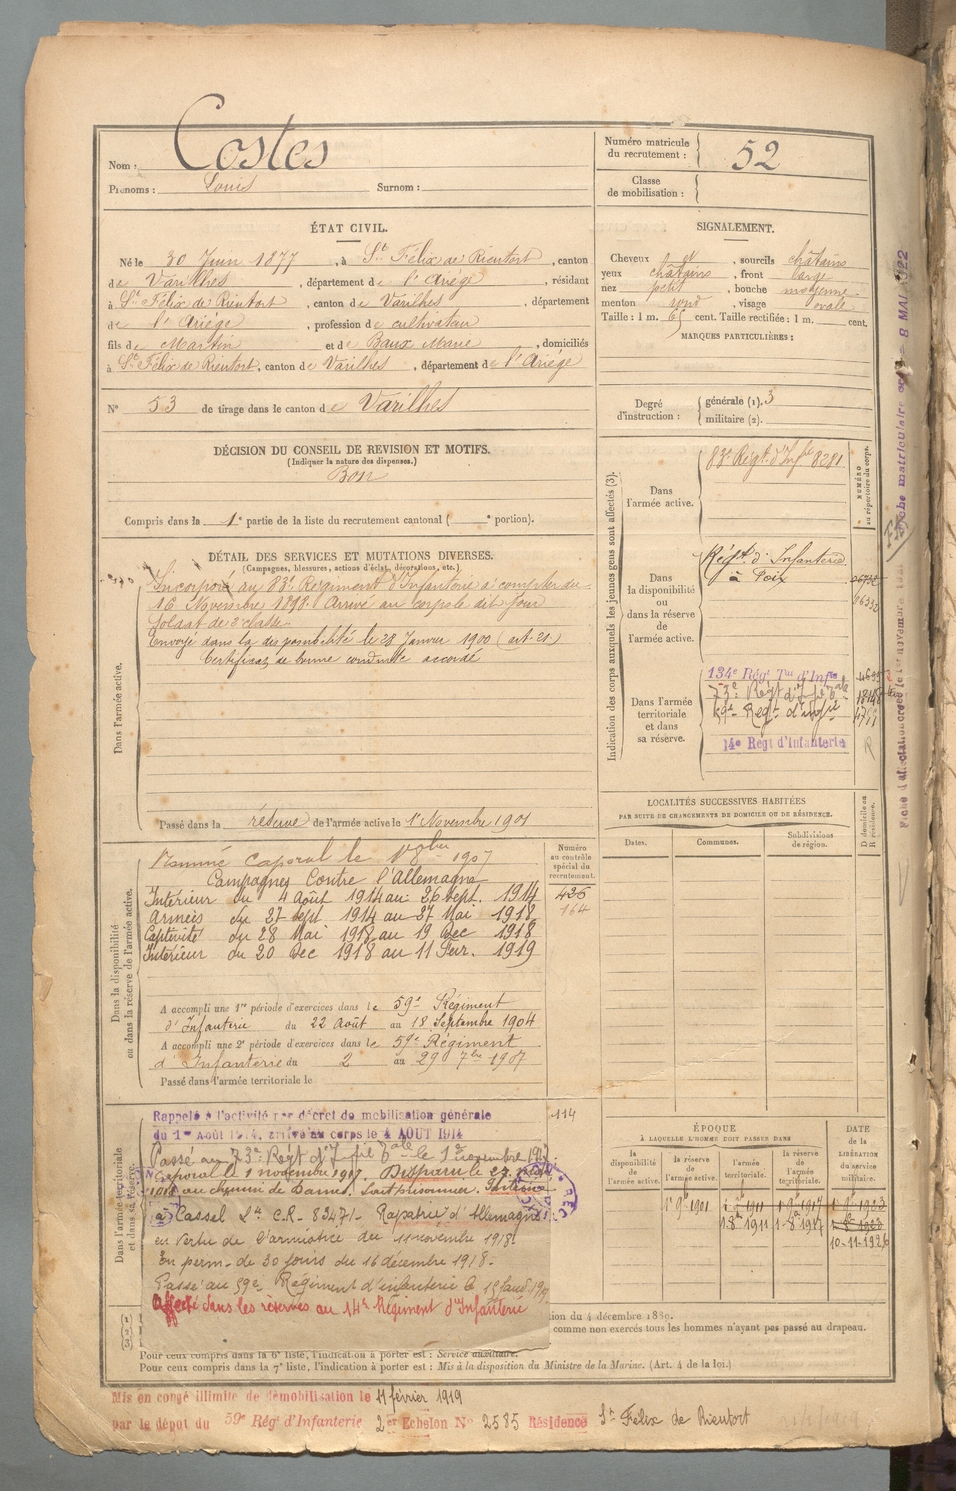 Nom : Costes
Prénoms : Louis Surnom :
Numéro matricule
du recrutement : 52
Classe
de mobilisation :
ÉTAT CIVIL.
Né le 30 Juin 1877, à St Félix de Rieutort, canton
de Varilhes, département de l'Ariège, résidant
à St Félix de Rieutort, canton de Varilhes, département
de l'Ariège, profession de cultivateur
fils de Martin et de Baux Marie, domiciliés
à St Félix de Rieutort, canton de Varilhes, département de l'Ariège
N° 53 de tirage dans le canton de Varilhes
SIGNALEMENT.
Cheveux, sourcils châtains
yeux châtains, front large
nez petit, bouche moyenne
menton rond, visage ovale
Taille : 1 m. 65 cent. Taille rectifiée : 1 m. cent.
MARQUES PARTICULIÈRES :
Degré
d'instruction :
générale (1). 3
militaire (2).
DÉCISION DU CONSEIL DE REVISION ET MOTIFS.
(Indiquer la nature des dispenses.)
Bon
Compris dans la 1e partie de la liste du recrutement cantonal ( e portion).
DÉTAIL DES SERVICES ET MUTATIONS DIVERSES.
(Campagnes, blessures, actions d'éclat, décorations, etc.)
Dans l'armée active.
Incorporé au 83e Régiment d'Infanterie à compter du
16 Novembre 1898. Arrivé au corps le dit jour
Soldat de 2e classe
Envoyé dans la disponibilité le 28 Janvier 1900 (art. 21.)
Certificat de bonne conduite accordé
Passé dans la réserve de l'armée active le 1er Novembre 1901
Indication des corps auxquels les jeunes gens sont affectés (3).
NUMÉRO
au répertoire du corps.
Dans
l'armée active.
83e Régt d'Infie 8281
Dans
la disponibilité
ou
dans la réserve
de
l'armée active.
Régt d'Infanterie
à Foix
Dans l'armée
territoriale
et dans
sa réserve.
134e Régt Tal d'Infie
73e Régt d'Infie Tale
59e Regt d'infie
14e Régt d'Infanterie
R
LOCALITÉS SUCCESSIVES HABITÉES
PAR SUITE DE CHANGEMENTS DE DOMICILE OU DE RÉSIDENCE.
Dates. Communes. Subdivisions
de région.
D domicile ou
R résidence.
Dans la disponibilité
ou dans la réserve de l'armée active.
Numéro
au contrôle
spécial du
recrutement.
Nommé Caporal le 1er 9bre 1907
Campagnes Contre l'Allemagne
Intérieur du 4 Août 1914 au 26 Sept. 1914
Armées du 27 sept 1914 au 27 Mai 1918
Captivité du 28 Mai 1918 au 19 Dec 1918
Intérieur du 20 Dec 1918 au 11 Fev. 1919
425
164
A accompli une 1re période d'exercices dans le 59e Régiment
d'Infanterie du 22 Août au 18 Septembre 1904
A accompli une 2e période d'exercices dans le 59e Régiment
d'Infanterie du 2 au 29 7bre 1907
Passé dans l'armée territoriale le
Dans l'armée territoriale
et dans sa réserve.
114
Rappelé à l'activité par décret de mobilisation générale
du 1er Août 1914, arrivé au corps le 4 AOUT 1914
Passé au 73e Regt d'Infie Tale le 1er novembre
Caporal le 1 novembre 1907. Disparu le 27 mai
1918 au chemin de Dames. Soit prisonnier. Interné
à Cassel L. C.R. 83471- Rapatrié d'Allemagne
en vertu de l'armistice du 11 novembre 1918
En perm. de 30 jours du 16 décembre 1918.
Passé au 59e Régiment d'infanterie le
Affecté dans les réserves au 14e Régiment d'Infanterie
ÉPOQUE
À LAQUELLE L'HOMME DOIT PASSER DANS
la
disponibilité
de l'armée
active.
la réserve
de l'armée
active.
l'armée
territoriale.
la réserve
de l'armée
territoriale.
DATE
de la
LIBÉRATION
du service
militaire.
1er 9b 1901
1-8bre 1911 1-8bre 1917
ion du 4 décembre 1889.
comme non exercés tous les hommes n'ayant pas passé au drapeau.
Pour ceux compris dans la 6e liste, l'indication à porter est : Service auxiliaire.
Pour ceux compris dans la 7e liste, l'indication à porter est : Mis à la disposition du Ministre de la Marine. (Art. 4 de la loi.)
Mis en congé illimité de démobilisation le 11 février 1919
par le dépôt du 59e Rég' d'Infanterie 2er Echelon N° 2585 Résidence St Félix de Rieutort